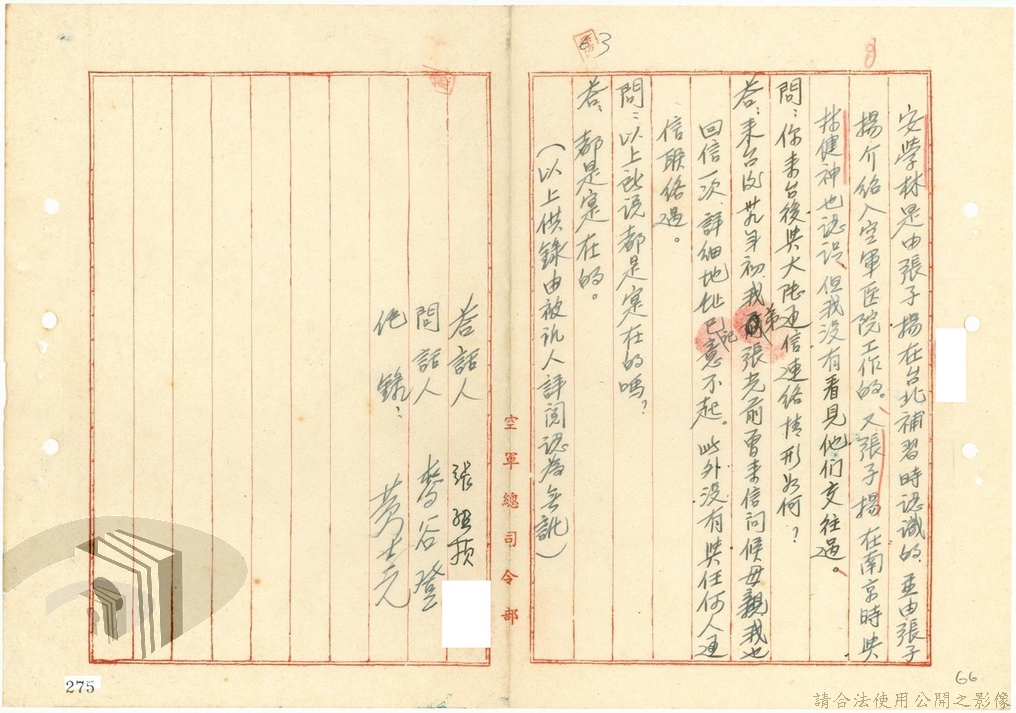 安學林是由張子揚在台北補習時認識的,並由張子
揚介紹入空軍医院工作的。又張子揚在南京時與
林健神也認识,但我没有看見他们交往過。
問:你来台後與大陸通信連絡情形如何?
答:来台後卅九年初,我弟張光前曾来信问候母親我也
回信一次,詳細地址已記憶不起。此外没有與任何人通
信联络過。
問:以上所说都是寔在的嗎?
答:都是寔在的。
(以上供錄由被讯人詳阅認為無訛)
答話人 張
問話人 喬谷登
紀錄: 黄士元
空軍總司令部
63
8
66
275
請合法使用公開之影像